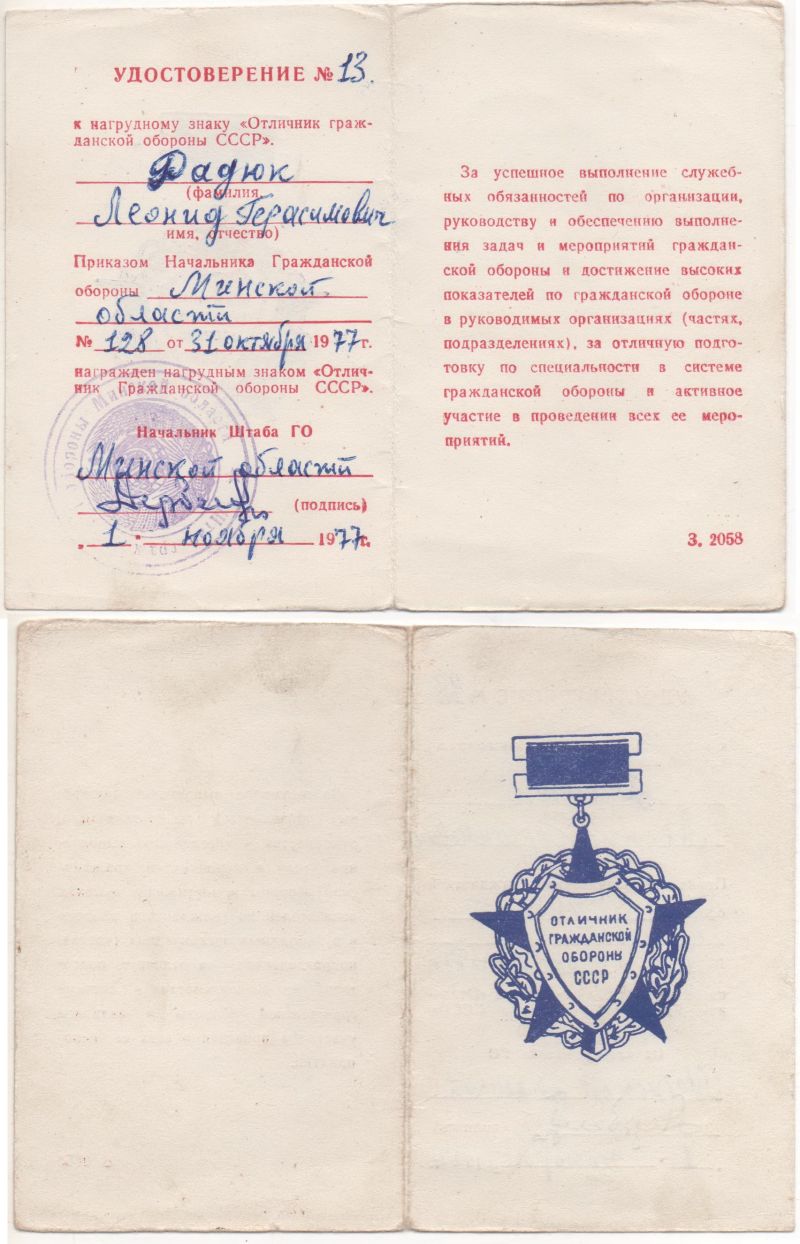 УДОСТОВЕРЕНИЕ № 13.
к нагрудному знаку «Отличник граж-
данской обороны СССР».
Радюк
(фамилия,
Леонид Герасимович
имя, отчество)
Приказом Начальника Гражданской
обороны Минской
области
№ 128 от 31 октября 1977 г.
награжден нагрудным знаком «Отлич-
ник Гражданской обороны СССР».
Начальник Штаба ГО
Минской области
(подпись)
„ 1 " ноября 1977 г.
За успешное выполнение служеб-
ных обязанностей по организации,
руководству и обеспечению выполне-
ния задач и мероприятий граждан-
ской обороны и достижение высоких
показателей по гражданской обороне
в руководимых организациях (частях,
подразделениях), за отличную подго-
товку по специальности в системе
гражданской обороны и активное
участие в проведении всех ее меро-
приятий.
З. 2058
ОТЛИЧНИК
ГРАЖДАНСКОЙ
ОБОРОНЫ
СССР